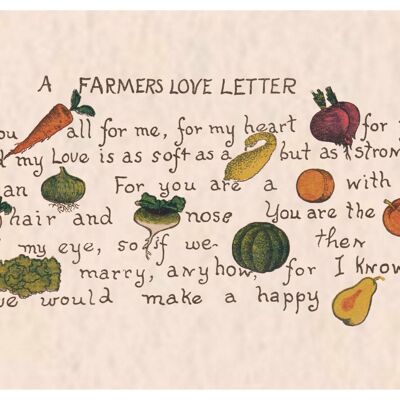 A FARMERS LOVE LETTER
ou all for me, for my heart for y
d my Love is as soft as a but as strong
an For you are a with
hair and nose You are the
f my eye, so if we then
marry, anyhow, for I know
we would make a happy